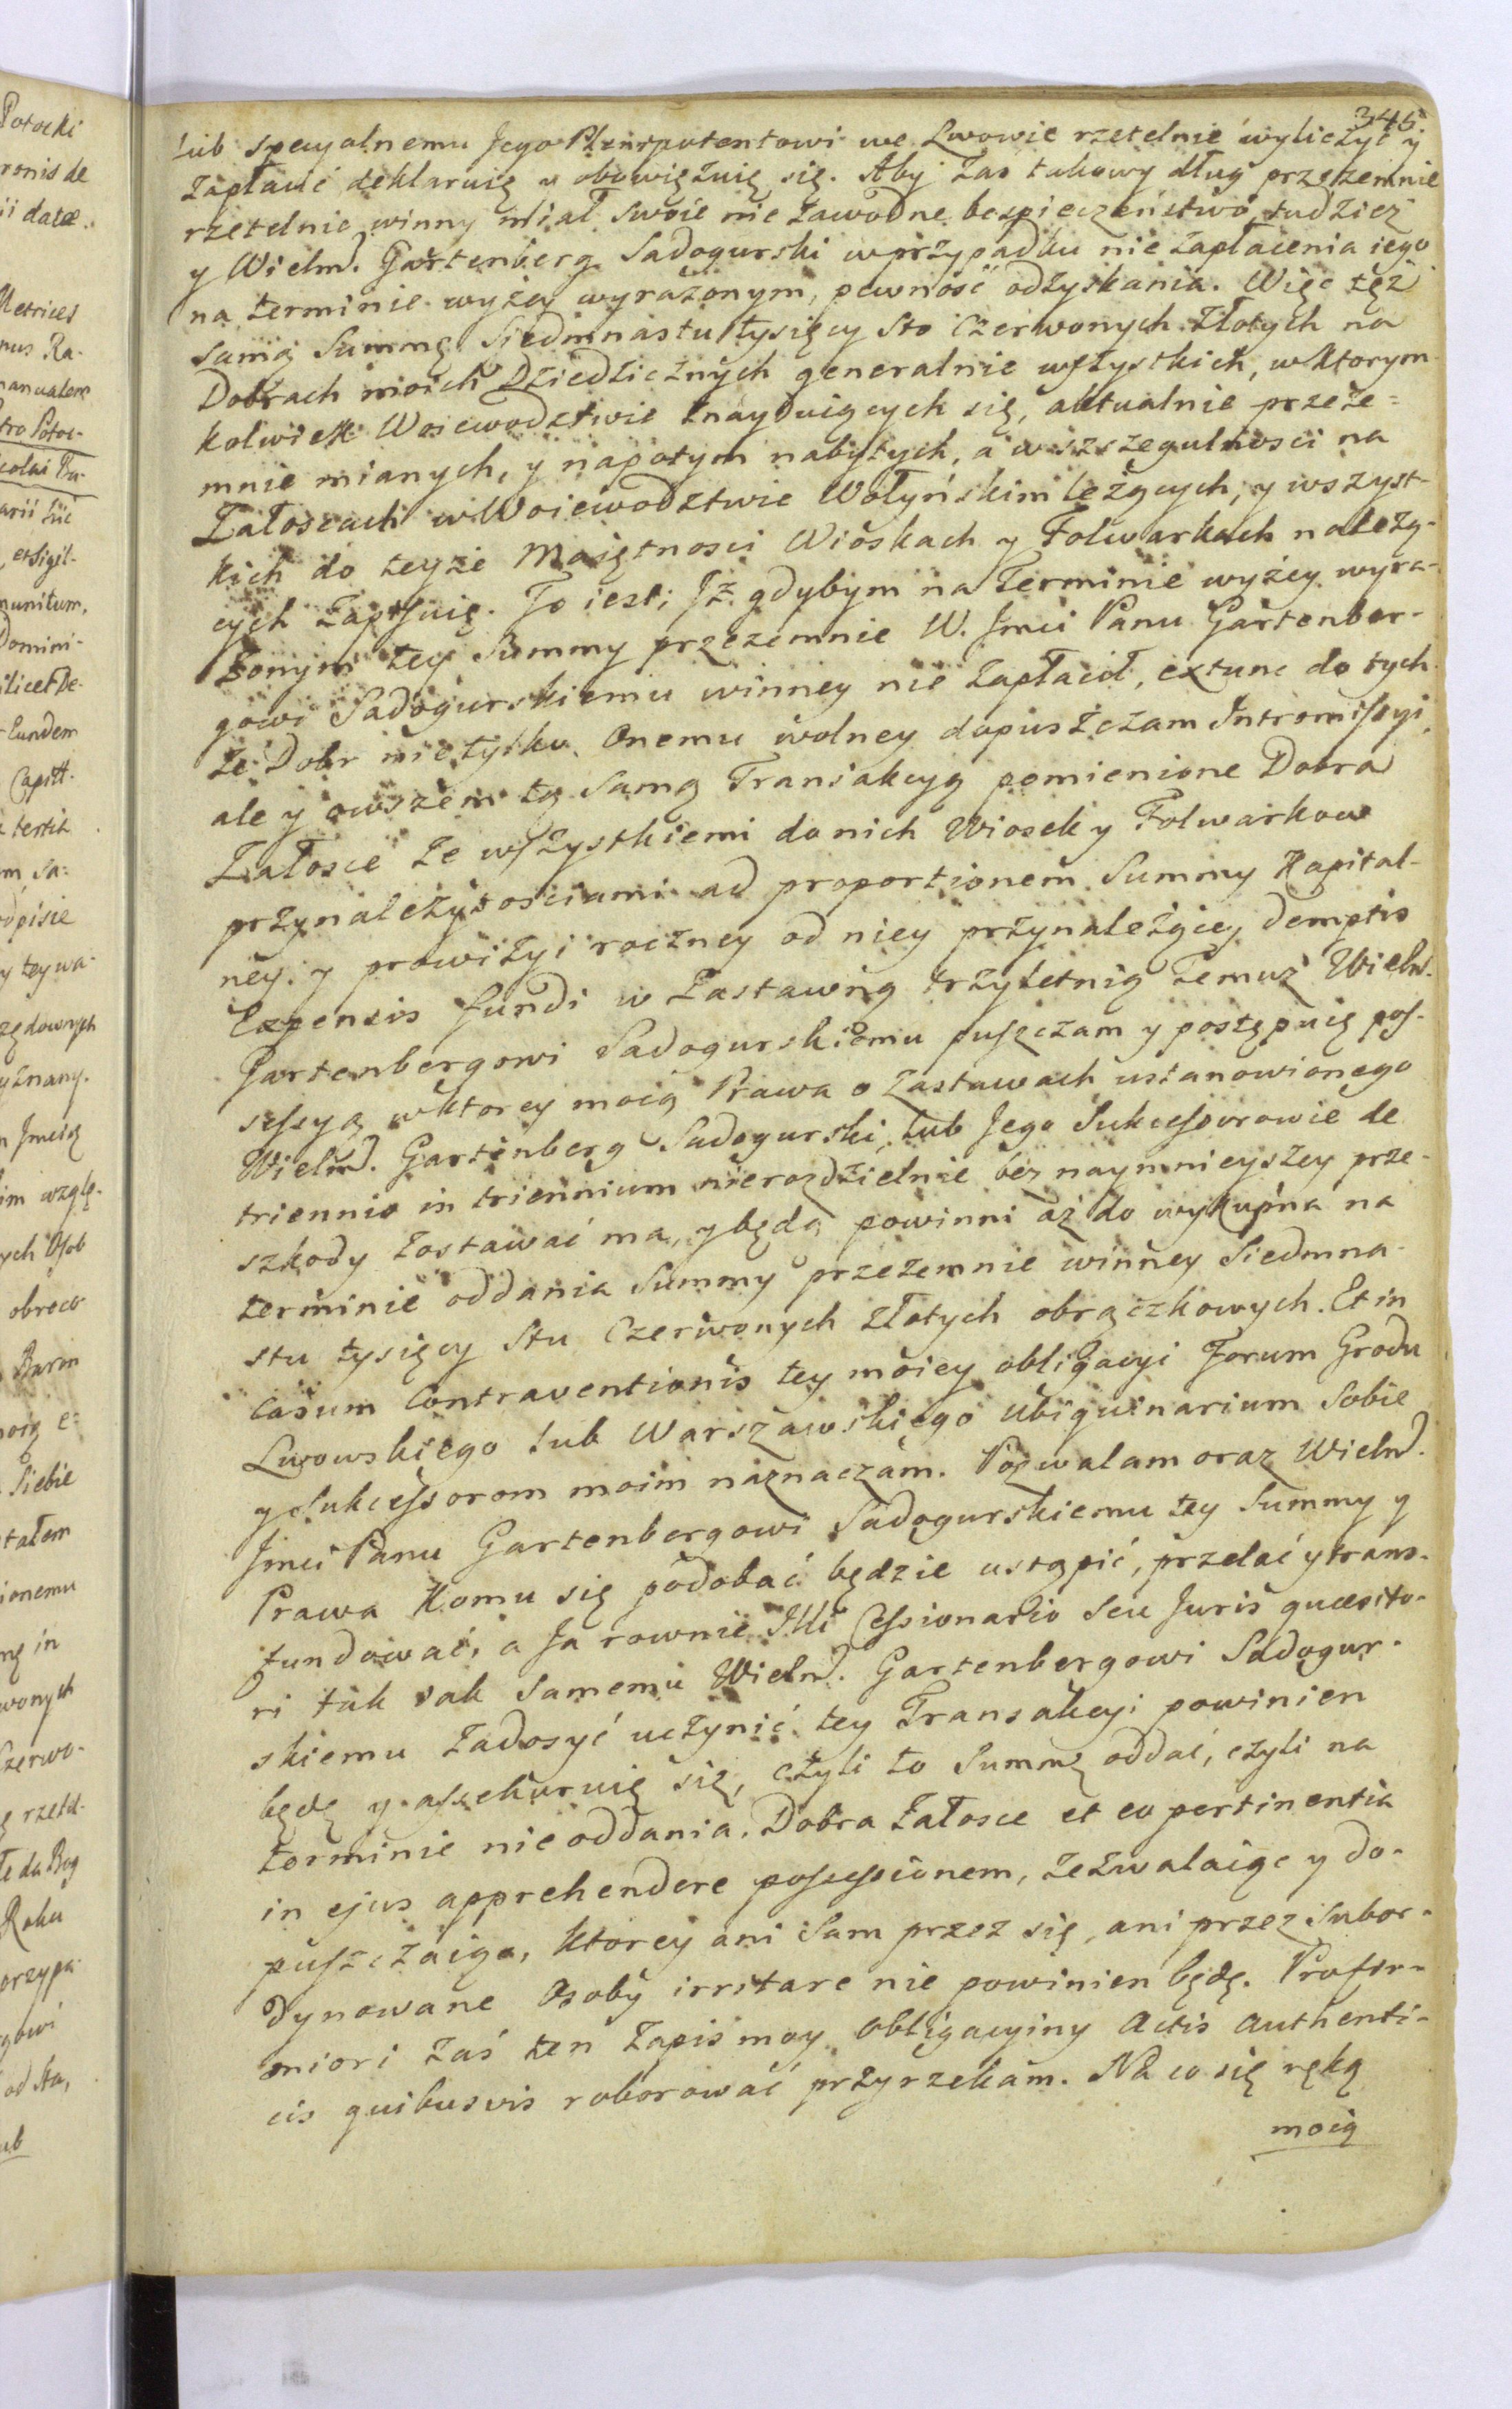 345.
lub specyalnemu Jego Plenipotentowi we Lwowie rzetelnie wyliczyć y
zapłacić deklaruię y obowięzuię się. Aby zaś takowy dług przezemnie
rzetelnie winny miał swoie nie zawodne bespieczeństwo, tudzież
y Wielm. Gartenberg Sadogurski w przypadku nie zapłacenia iego
na terminie wyżey wyrażonym, pewność odzyskania. Więc tęż
samą Summę Siedmnastu tysięcy Sto Czerwonych Złotych na
Dobrach moich Dziedzicznych generalnie wszystkich, w ktorym
kolwiek Woiewodztwie znayduiących się, aktualnie przeze=
mnie mianych, y napotym nabytych, a w szczegulnosci na
Załoscach w Woiewodztwie Wołyńskim leżących, y wszyst-
kich do teyże Maiętnosci Wioskach y Folwarkach należą-
cych zapisuię. To iest; Iż gdybym na Terminie wyżey wyra-
żonym tey Summy przezemnie W. Jmci Panu Gartenber-
gowi Sadogurskiemu winney nie zapłacił, extunc do tych
że Dobr nie tylko Onemu wolney dopuszczam Intromissyi,
ale y owszem tą samą Transakcyą pomienione Dobra
Załosce ze wszystkiemi do nich Wiosek y Folwarkow
przynależytosciami ad proportionem Summy Kapital-
ney y prowizyi roczney od niey przynależącey demptis
Expensis fundi w Zastawną trzyletnią Temuż Wielm.
Gartenbergowi Sadogurskiemu puszczam y postępuię pos-
sessyą w ktorey mocą Prawa o Zastawach ustanowionego
Wielm. Gartenberg Sadogurski, lub Jego Sukcessorowie de
triennio in triennium nierozdzielnie bez naymnieyszey prze-
szkody zostawać ma, y będą powinni aż do wykupna na
terminie oddania Summy przezemnie winney Siedmna-
stu tysięcy Stu Czerwonych Złotych obrączkowych. Et in
casum contraventionis tey moiey obligacyi Forum Grodu
Lwowskiego lub Warszawskiego ubiquinarium Sobie
y Sukcessorom moim naznaczam. Pozwalam oraz Wielm.
Jmci Panu Gartenbergowi Sadogurskiemu tey Summy y
Prawa Komu się podobać będzie ustąpić, przelać y trans-
fundować, a Ja rownie Illi Cessionario seu Juris quæsito-
ri tak iak Samemu Wielm. Gartenbergowi Sadogur-
skiemu zadosyć uczynić tey Transakcyi powinien
będę y assekuruię się, czyli to Summę oddać, czyli na
terminie nieoddania, Dobra Załosce et eo pertinentia
in ejus apprehendere possessionem, zezwalaiąc y do-
puszczaiąc, Ktorey ani Sam przez się, ani przez Subor-
dynowane Osoby irritare nie powinien będę. Profir-
miori zaś ten Zapis moy Obligacyiny Actis authenti-
cis quibusvis roborować przyrzekam. Na co się ręką
moią